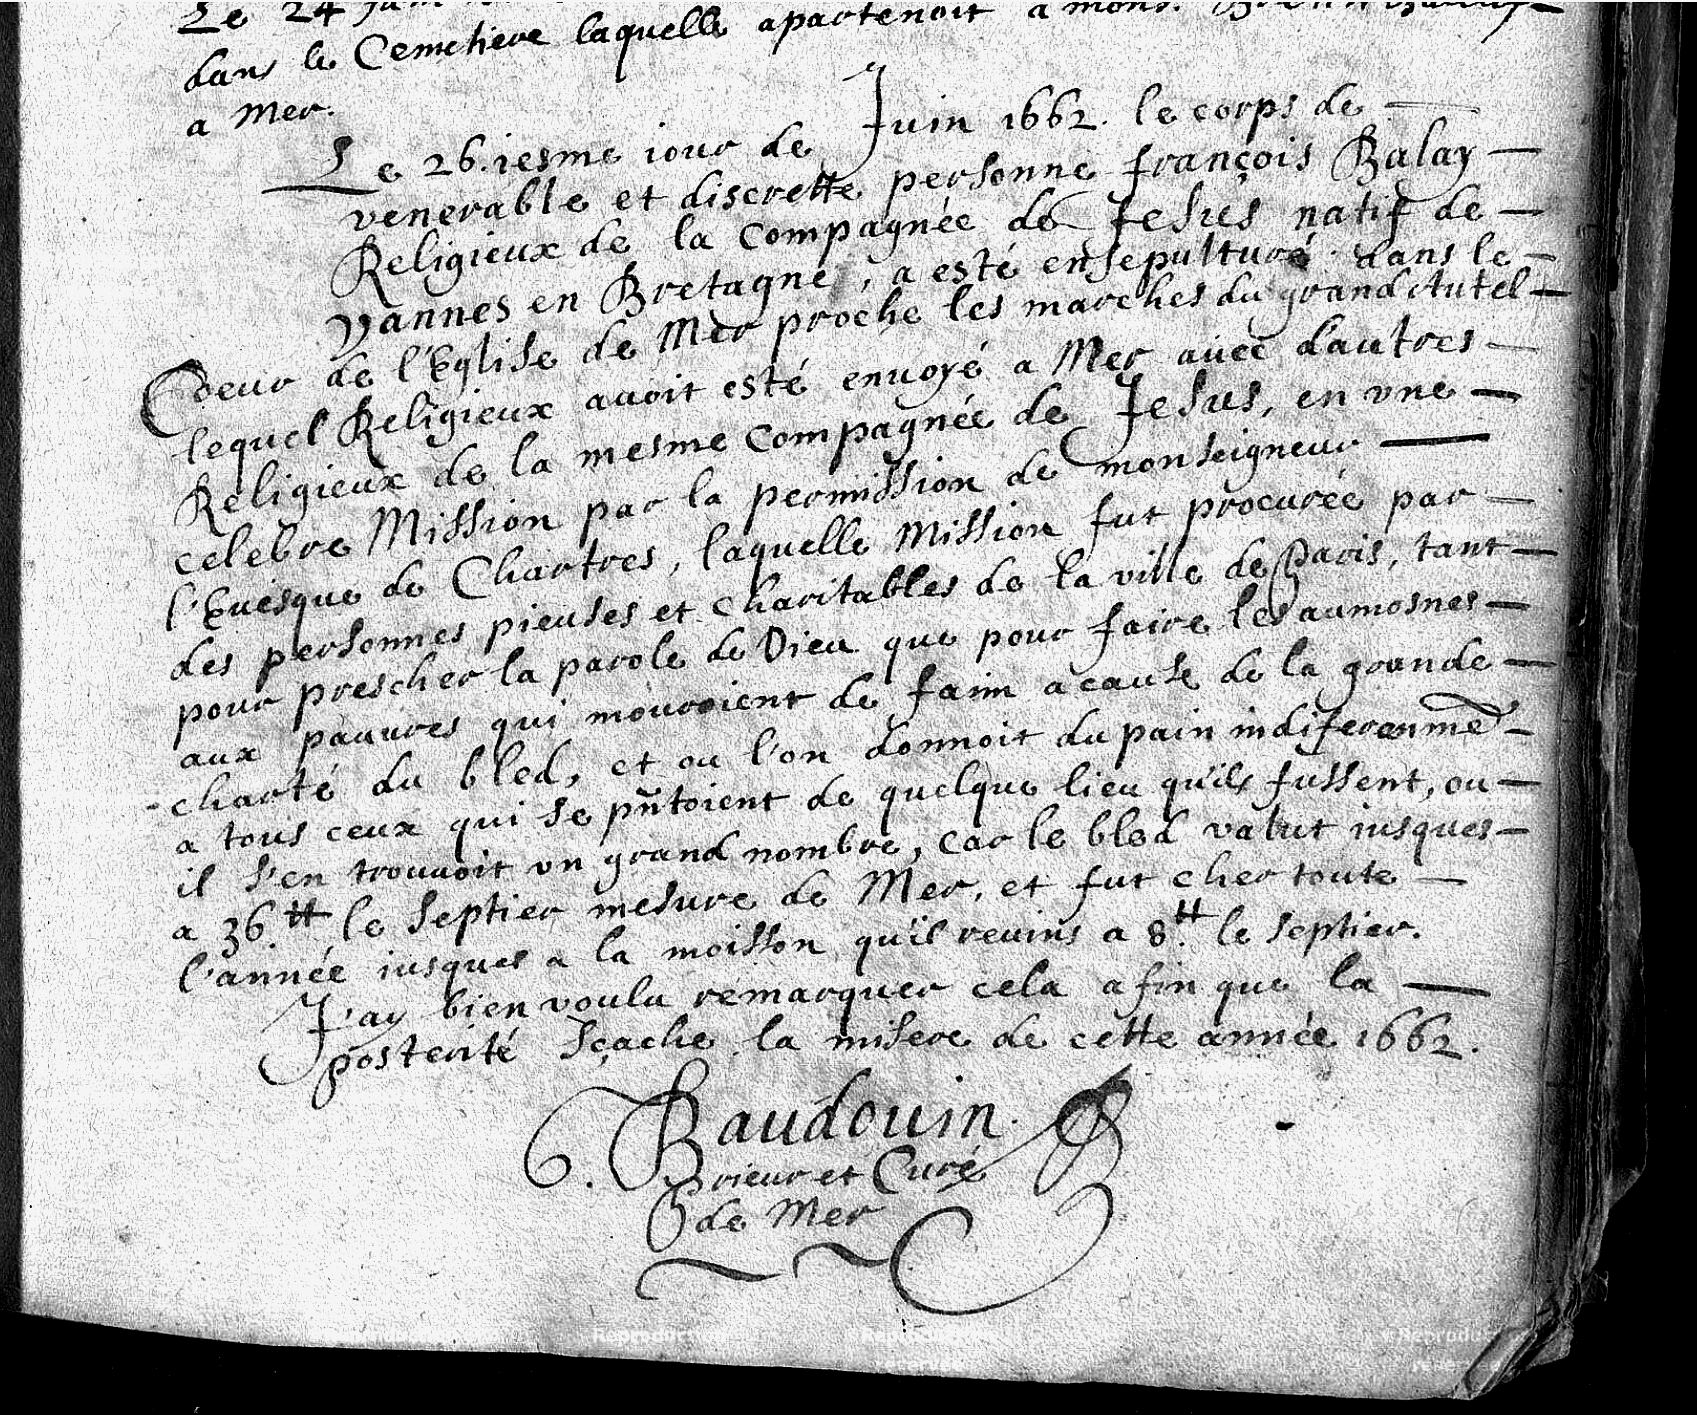 Le 24
dans le Cemetiere laquelle apartenoit a mons.
a Mer.
Le 26.iesme iour de Juin 1662. le corps de
venerable et discrette personne françois Balay
Religieux de la Compagnée de Jesus natif de
Vannes en Bretagne, a esté ensepulturé dans le
Coeur de l'Eglise de Mer proche les marches du grand Autel
lequel Religieux auoit esté enuoyé a Mer auec d'autres
Religieux de la mesme Compagnée de Jesus, en vne
celebre Mission par la permission de monseigneur
l'Euesque de Chartres, laquelle Mission fut procurée par
des personnes pieuses et charitables de la ville de Paris, tant
pour prescher la parole de Dieu que pour faire les aumosnes
aux pauures qui mouroient de faim a cause de la grande
charté du bled, et ou l'on donnoit du pain indiferenmẽ
a tous ceux qui se pñtoient de quelque lieu qu'ils fussent, ou
il s'en trouuoit vn grand nombre, car le bled valut iusques
a 36 tt le septier mesure de Mer, et fut cher toute
l'année iusques a la moisson qu'il reuins a 8.tt le septier.
J'ay bien voulu remarquer cela afin que la
posterité sçache la misere de cette année 1662.
Baudouin.
Prieur et Curé
de Mer